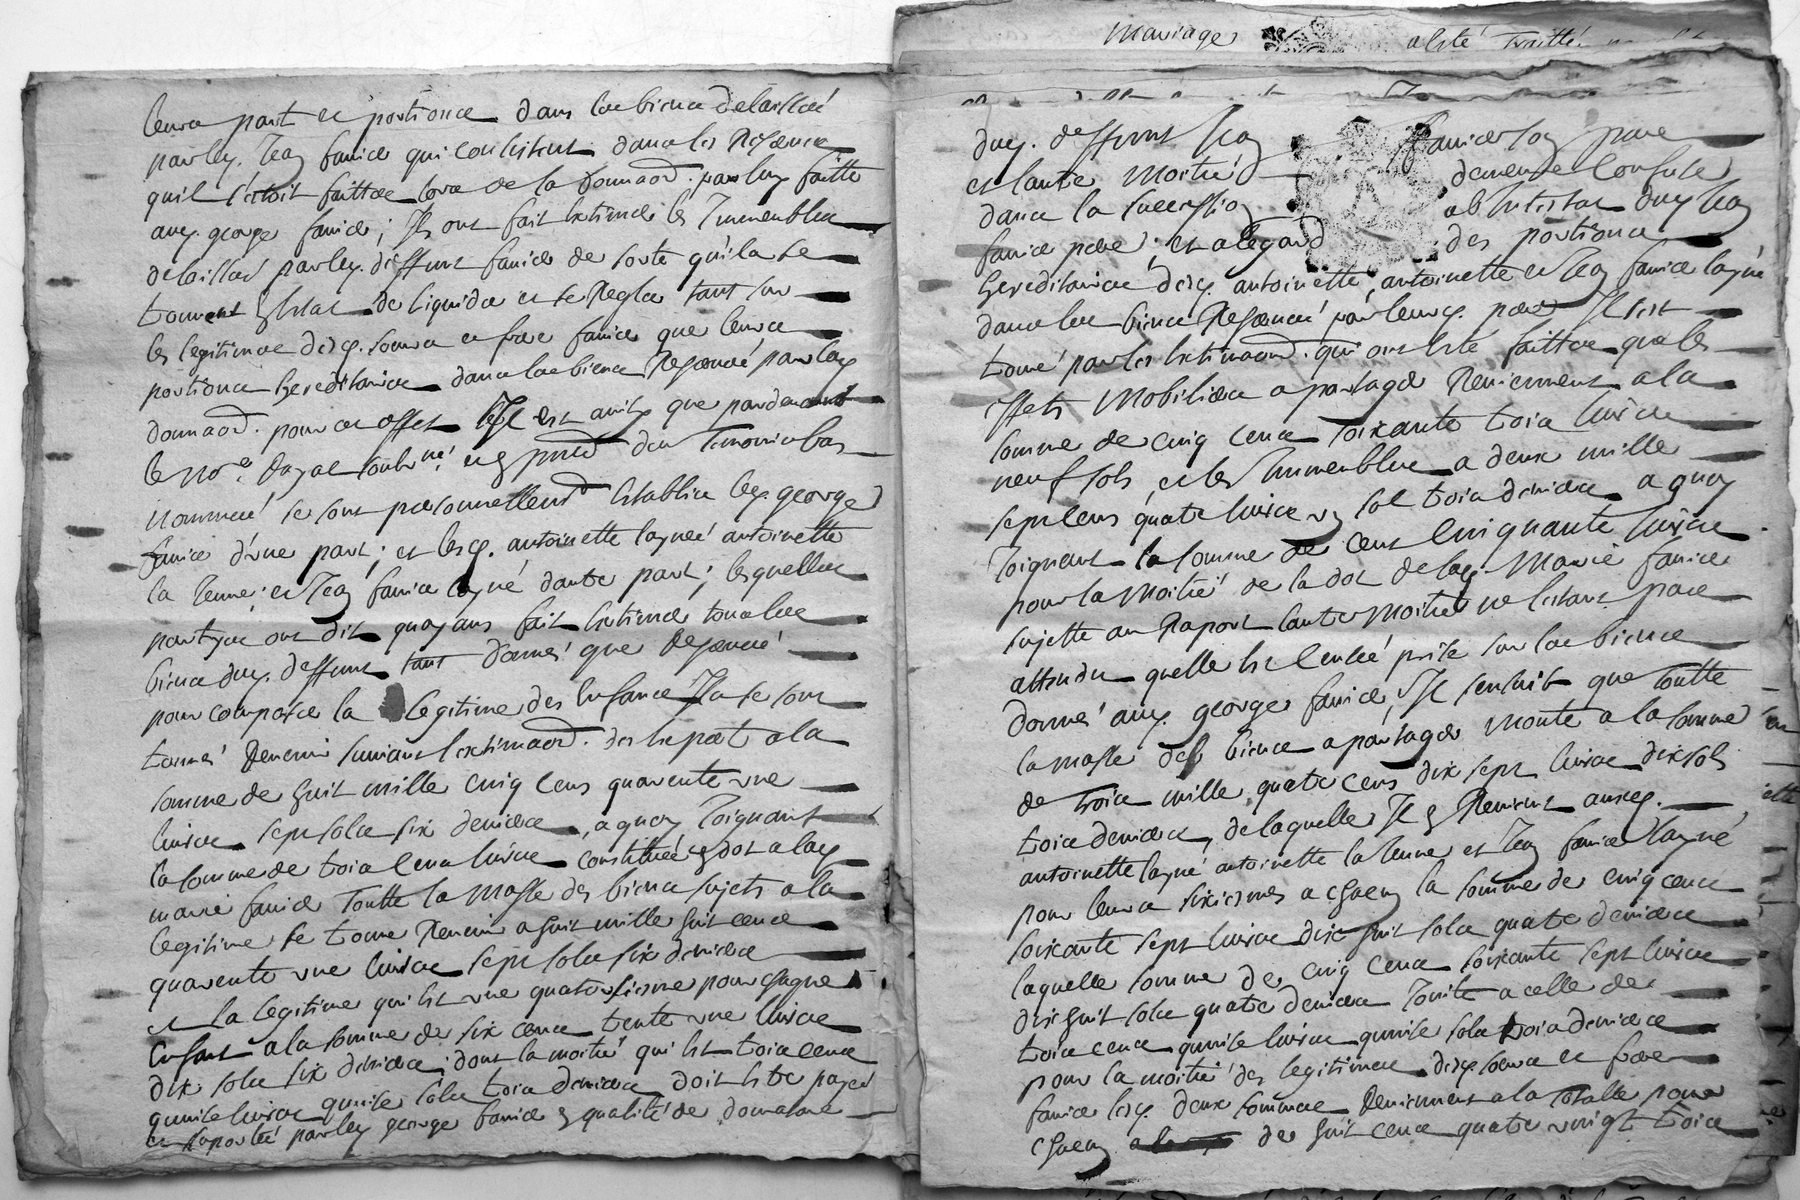 mariage esté traitté
leurs part et portions dans les biens delaissés
par led. Jean faniee qui consistent dans les reservés
quil s'estoit faittes lors de la donnaon. par luy faitte
aud. george faniee; Ils ont fait estimer les Immeubles
delaissés par led. deffunt faniee de sorte quils se
trouvent en estat de liquider et se regler tant sur
les legitimes desd. soeurs et frere faniee que leurs
portions hereditaires dans les biens reservés par lad.
donnaon. pour cet effet Il est ainsy que pardevant
le nore. royal soubsné. et en pnce des temoins bas
nommés se sont personnellemt establis led. george
faniee d'une part; et lesd. antoinette laynée antoinette
la jeune et Jean faniee layné dautre part; lesquelles
parties ont dit quayans fait estimer tous les
biens dud. deffunt tant donnés que reservés
pour composer la legitime des enfans Ils se sont
trouvés revenir suivant lestimaon. des expertz a la
somme de huit mille cinq cens quarente une
livres sept sols six deniers, a quoy joignant
la somme de trois cens livres constituée en dot a lad.
marie faniee toutte la masse des biens sujets a la
legitime se trouve revenir a huit mille huit cens
quarente une livres sept sols six deniers
et la legitime qui est une quatorsiesme pour chaque
enfant a la somme de six cens trente une livres
dix sols six deniers; dont la moitié qui est trois cens
quinse livres quinse sols trois deniers doit estre payée
et suportée par led. george faniee en qualité de donataire
dud. deffunt Jean faniee son pere
et lautre moitié demeure confuse
dans la succession ab intestat dud. Jean
faniee pere; et a legard des portions
hereditaires desd. antoinette, antoinette et Jean faniee layné
dans les biens reservés par leurd. pere Il s'est
trouvé par les estimaons. qui ont esté faittes que les
effets mobiliers a partager reviennent a la
somme de cinq cens soixante trois livres
neuf sols et les Immeubles a deux mille
sept cens quatre livres un sol trois deniers a quoy
joignant la somme de cent cinquante livres
pour la moitié de la dot de lad. Marie faniee
sujette au raport lautre moitié ne lestant pas
attendu quelle est censée prise sur les biens
donnés aud. george faniee, Il s'ensuit que toutte
la masse des biens a partager monte a la somme
de trois mille quatre cens dix sept livres dix sols
trois deniers, de laquelle Il en revient auxd.
antoinette layné antoinette la jeune et Jean faniee layné
pour leurs sixiemes a chacun la somme de cinq cens
soixante sept livres dix huit sols quatre deniers
laquelle somme de cinq cens soixante sept livres
dix huit sols quatre deniers jointe a celle de
trois cens quinse livres quinse sols trois deniers
pour la moitié des legitimes desd. soeurs et frere
faniee lesd. deux sommes reviennent a la totalle pour
chacun de huit cens quatre vingt trois